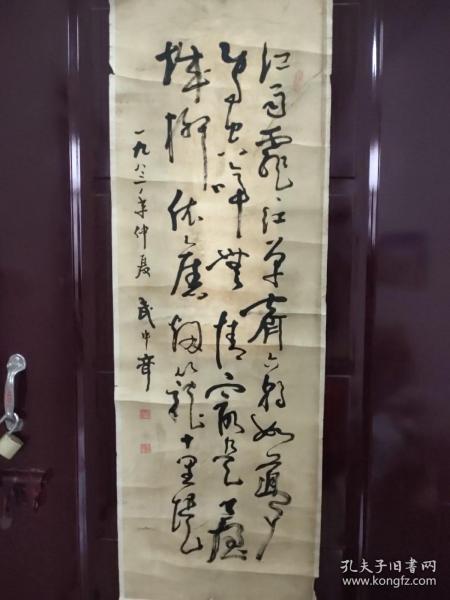 江雨霏霏江草齐六朝如梦
鸟空啼无情最是台
城柳依旧烟笼十里堤
一九八三年仲夏 武中奇
孔夫子旧书网
www.kongfz.com